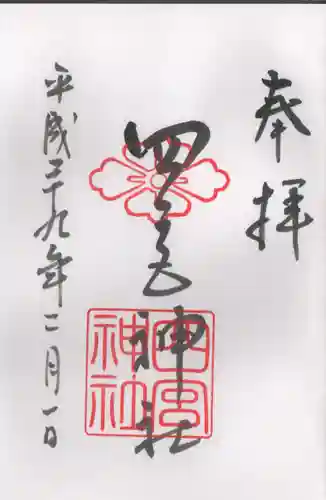 奉拝
四宮神社
四宮
神社
平成二十九年二月一日